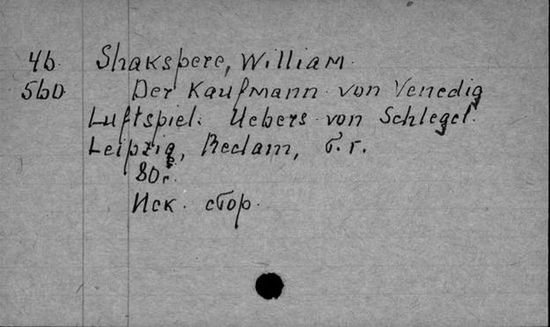 4б. Shakspere, William.
560 Der Kaufmann von Venedig
Luftspiel. Uebers von Schlegel.
Leipzig, Reclam, б. г.
80 с.
Иск. стор.